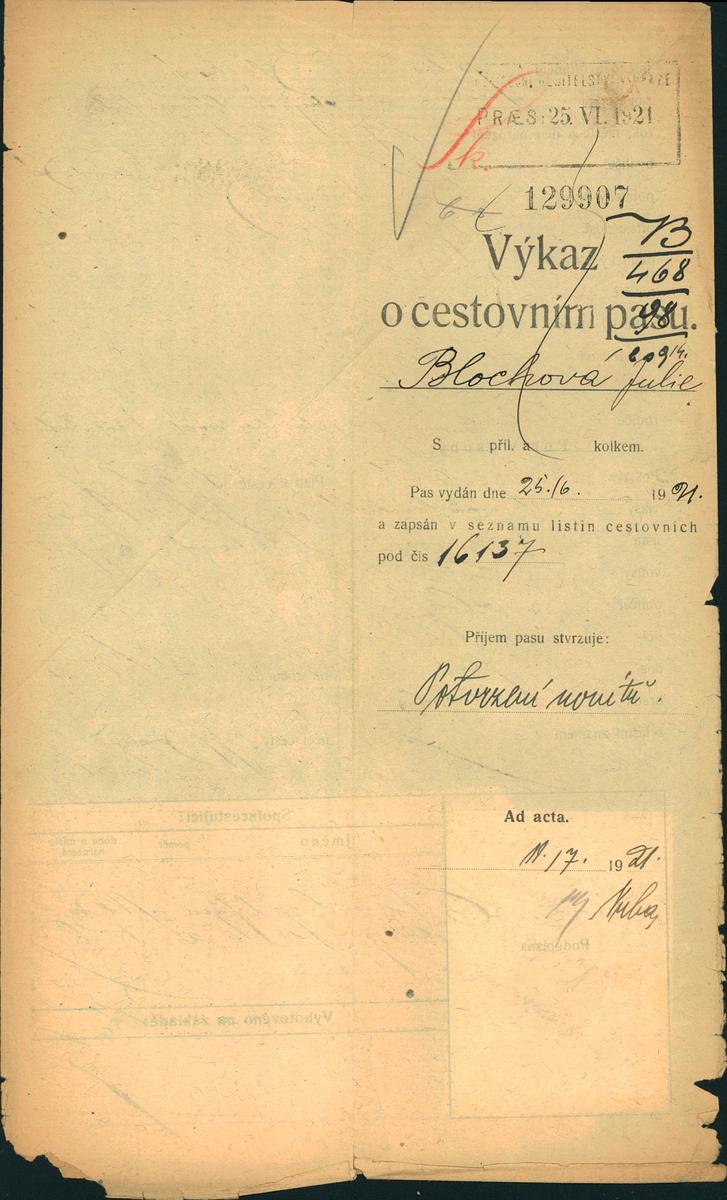 PRÆS: 25. VI. 1921
Sk.
129907
B
468
98
Výkaz
o cestovním pasu.
Blochová Julie
S příl. a kolkem.
Pas vydán dne 25./6. 1921.
a zapsán v seznamu listin cestovních
pod čís 16137
Příjem pasu stvrzuje:
Potvrzení uvnitř.
Ad acta.
17. 1921.
Spolucestující:
Jméno
poměr
doba a místo
narození
Podobizna
Vyhotoveno na základě: